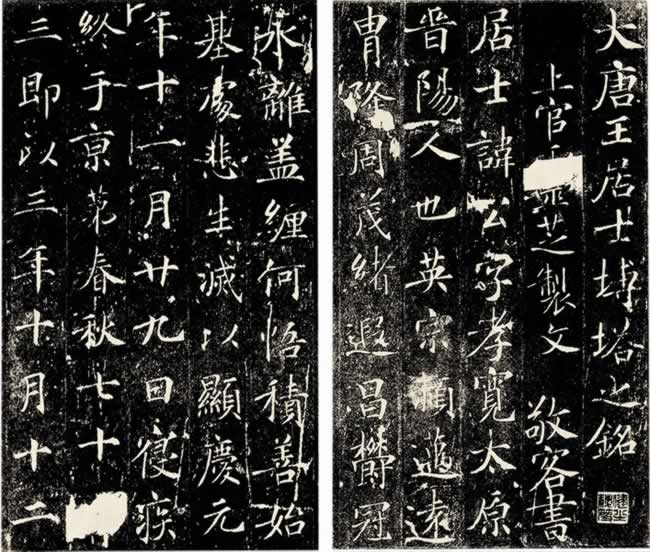 大唐王居士塼塔之銘
上官芝製文 敬客書
居士諱公字孝寬太原
晉陽人也英宗穎邁遠
胄隆周茂緒遐昌欝冠
永離盖纏何悟積善始
基處悲生滅以顯慶元
年十一月廿九日寑疾
終于京苐春秋七十
三即以三年十月十二